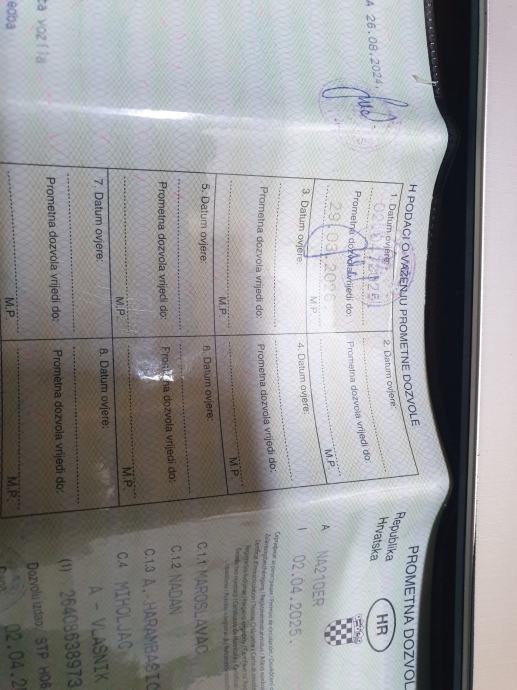 A 26.08.2024.
ta vozila
H PODACI O VAŽENJU PROMETNE DOZVOLE
1. Datum ovjere:
Prometna dozvola vrijedi do:
29.03.2026
M.P.
2. Datum ovjere:
Prometna dozvola vrijedi do:
M.P.
3. Datum ovjere:
Prometna dozvola vrijedi do:
M.P.
4. Datum ovjere:
Prometna dozvola vrijedi do:
M.P.
5. Datum ovjere:
Prometna dozvola vrijedi do:
M.P.
6. Datum ovjere:
Prometna dozvola vrijedi do:
M.P.
7. Datum ovjere:
Prometna dozvola vrijedi do:
M.P.
8. Datum ovjere:
Prometna dozvola vrijedi do:
M.P.
PROMETNA DOZVOL
Republika
Hrvatska
HR
A NA210ER
I 02.04.2025.
C.1.1 MAROSLAVAC
C.1.2 NADAN
C.1.3 A. HARAMBAŠIĆ
C.4 MIHOLJAC
A - VLASNIK
(1) 26408638973
Dozvolu izdao: STP
02.04.2